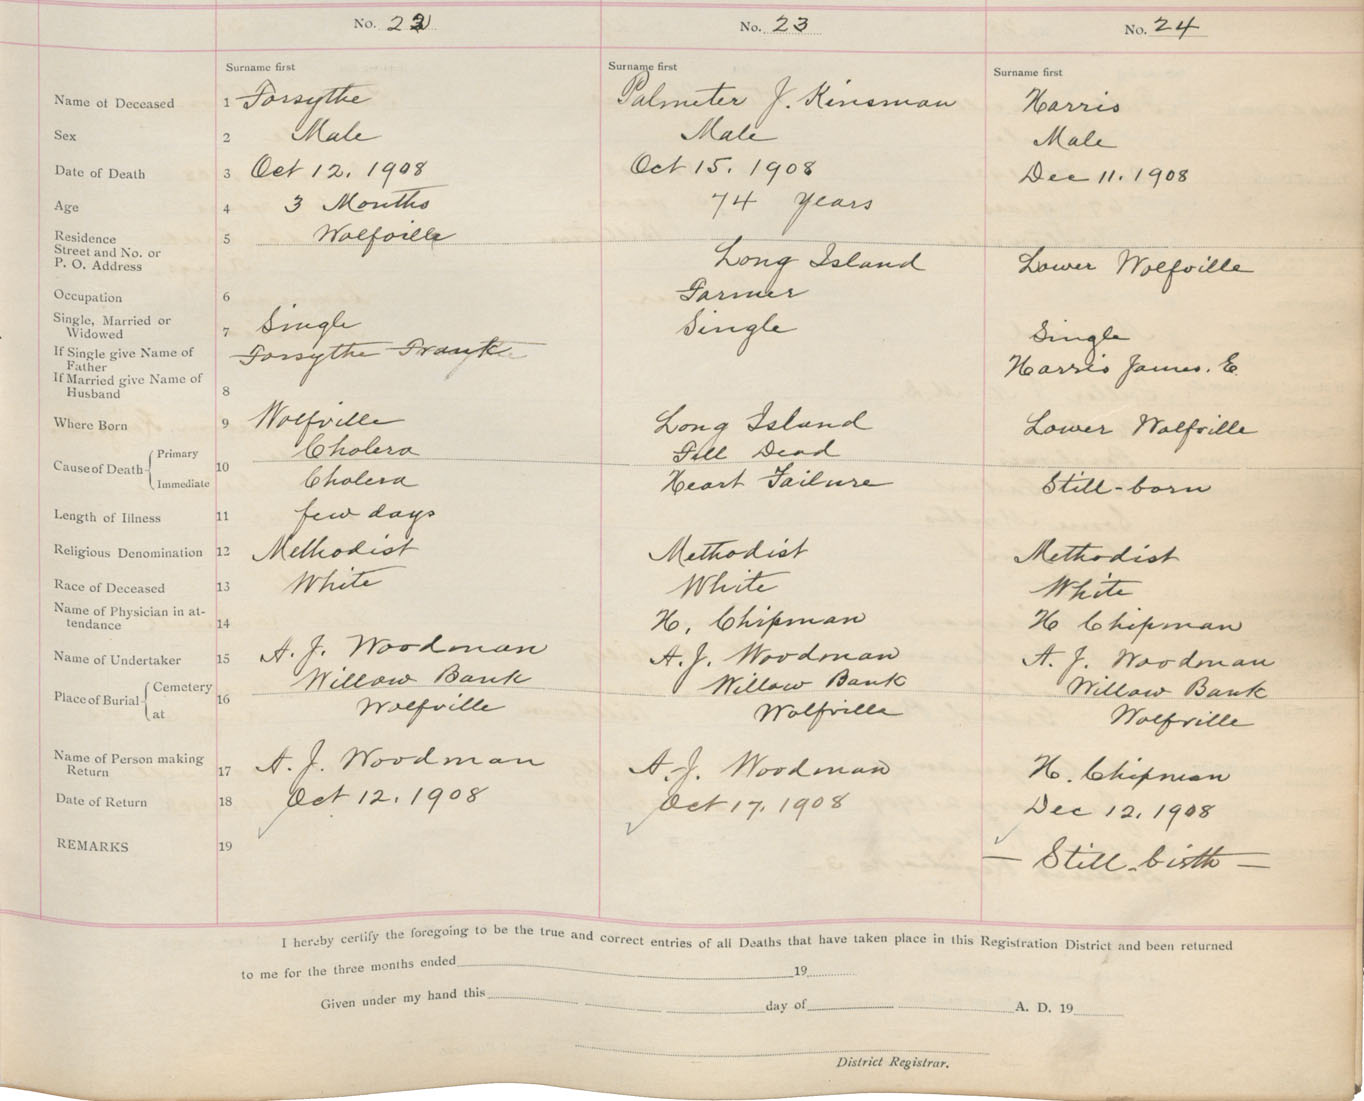 No. 22 No. 23 No. 24
Surname first Surname first Surname first
Name of Deceased 1 Forsythe Palmeter J. Kinsman Harris
Sex 2 Male Male Male
Date of Death 3 Oct 12. 1908 Oct 15. 1908 Dec 11. 1908
Age 4 3 Months 74 years
Residence 5 Wolfville
Street and No. or
P. O. Address Long Island Lower Wolfville
Occupation 6 Farmer
Single, Married or
Widowed 7 Single Single Single
If Single give Name of
Father Forsythe Frank Harris James. E.
If Married give Name of
Husband 8
Where Born 9 Wolfville Long Island Lower Wolfville
Cause of Death Primary 10 Cholera Fell Dead
Immediate Cholera Heart Failure Still-born
Length of Illness 11 few days
Religious Denomination 12 Methodist Methodist Methodist
Race of Deceased 13 White White White
Name of Physician in at-
tendance 14 H. Chipman H Chipman
Name of Undertaker 15 A. J. Woodman A. J. Woodman A. J. Woodman
Place of Burial Cemetery 16 Willow Bank Willow Bank Willow Bank
at Wolfville Wolfville Wolfville
Name of Person making
Return 17 A. J. Woodman A. J. Woodman H. Chipman
Date of Return 18 Oct 12. 1908 Oct 17. 1908 Dec 12. 1908
REMARKS 19 — Still-birth —
I hereby certify the foregoing to be the true and correct entries of all Deaths that have taken place in this Registration District and been returned
to me for the three months ended 19
Given under my hand this day of A. D. 19
District Registrar.